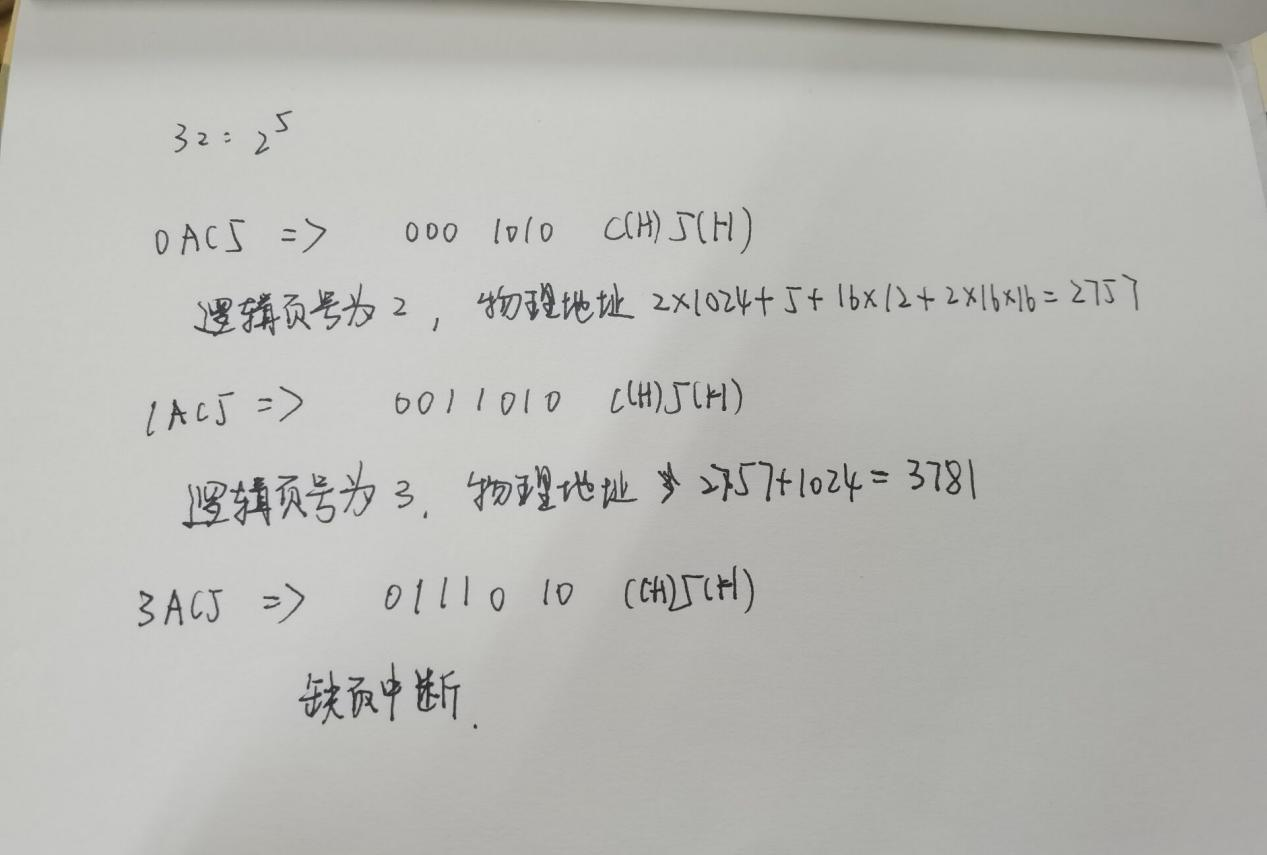 32 = 2^5
0AC5 => 000 1010 C(H)5(H)
逻辑页号为2, 物理地址 2×1024+5+16×12+2×16×16=2757
1AC5 => 0011010 C(H)5(H)
逻辑页号为3. 物理地址 2757+1024=3781
3AC5 => 0111010 C(H)5(H)
缺页中断.